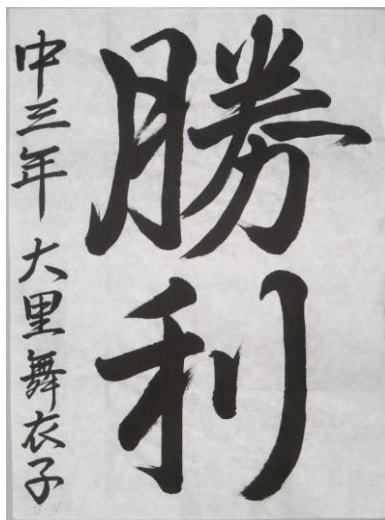 勝利
中三年 大里舞衣子